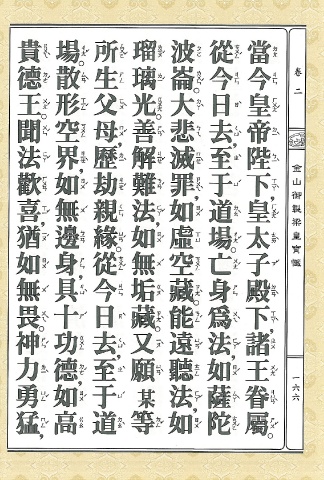 當今皇帝陛下，皇太子殿下，諸王眷屬。
從今日去，至于道場，亡身爲法，如薩陀
波崙。大悲滅罪，如虛空藏。能遠聽法，如
瑠璃光。善解難法，如無垢藏。又願某等
所生父母，歷劫親緣，從今日去，至于道
場，散形空界，如無邊身。具十功德，如高
貴德王。聞法歡喜，猶如無畏。神力勇猛，
卷二
金山御製梁皇寶懺
一六六